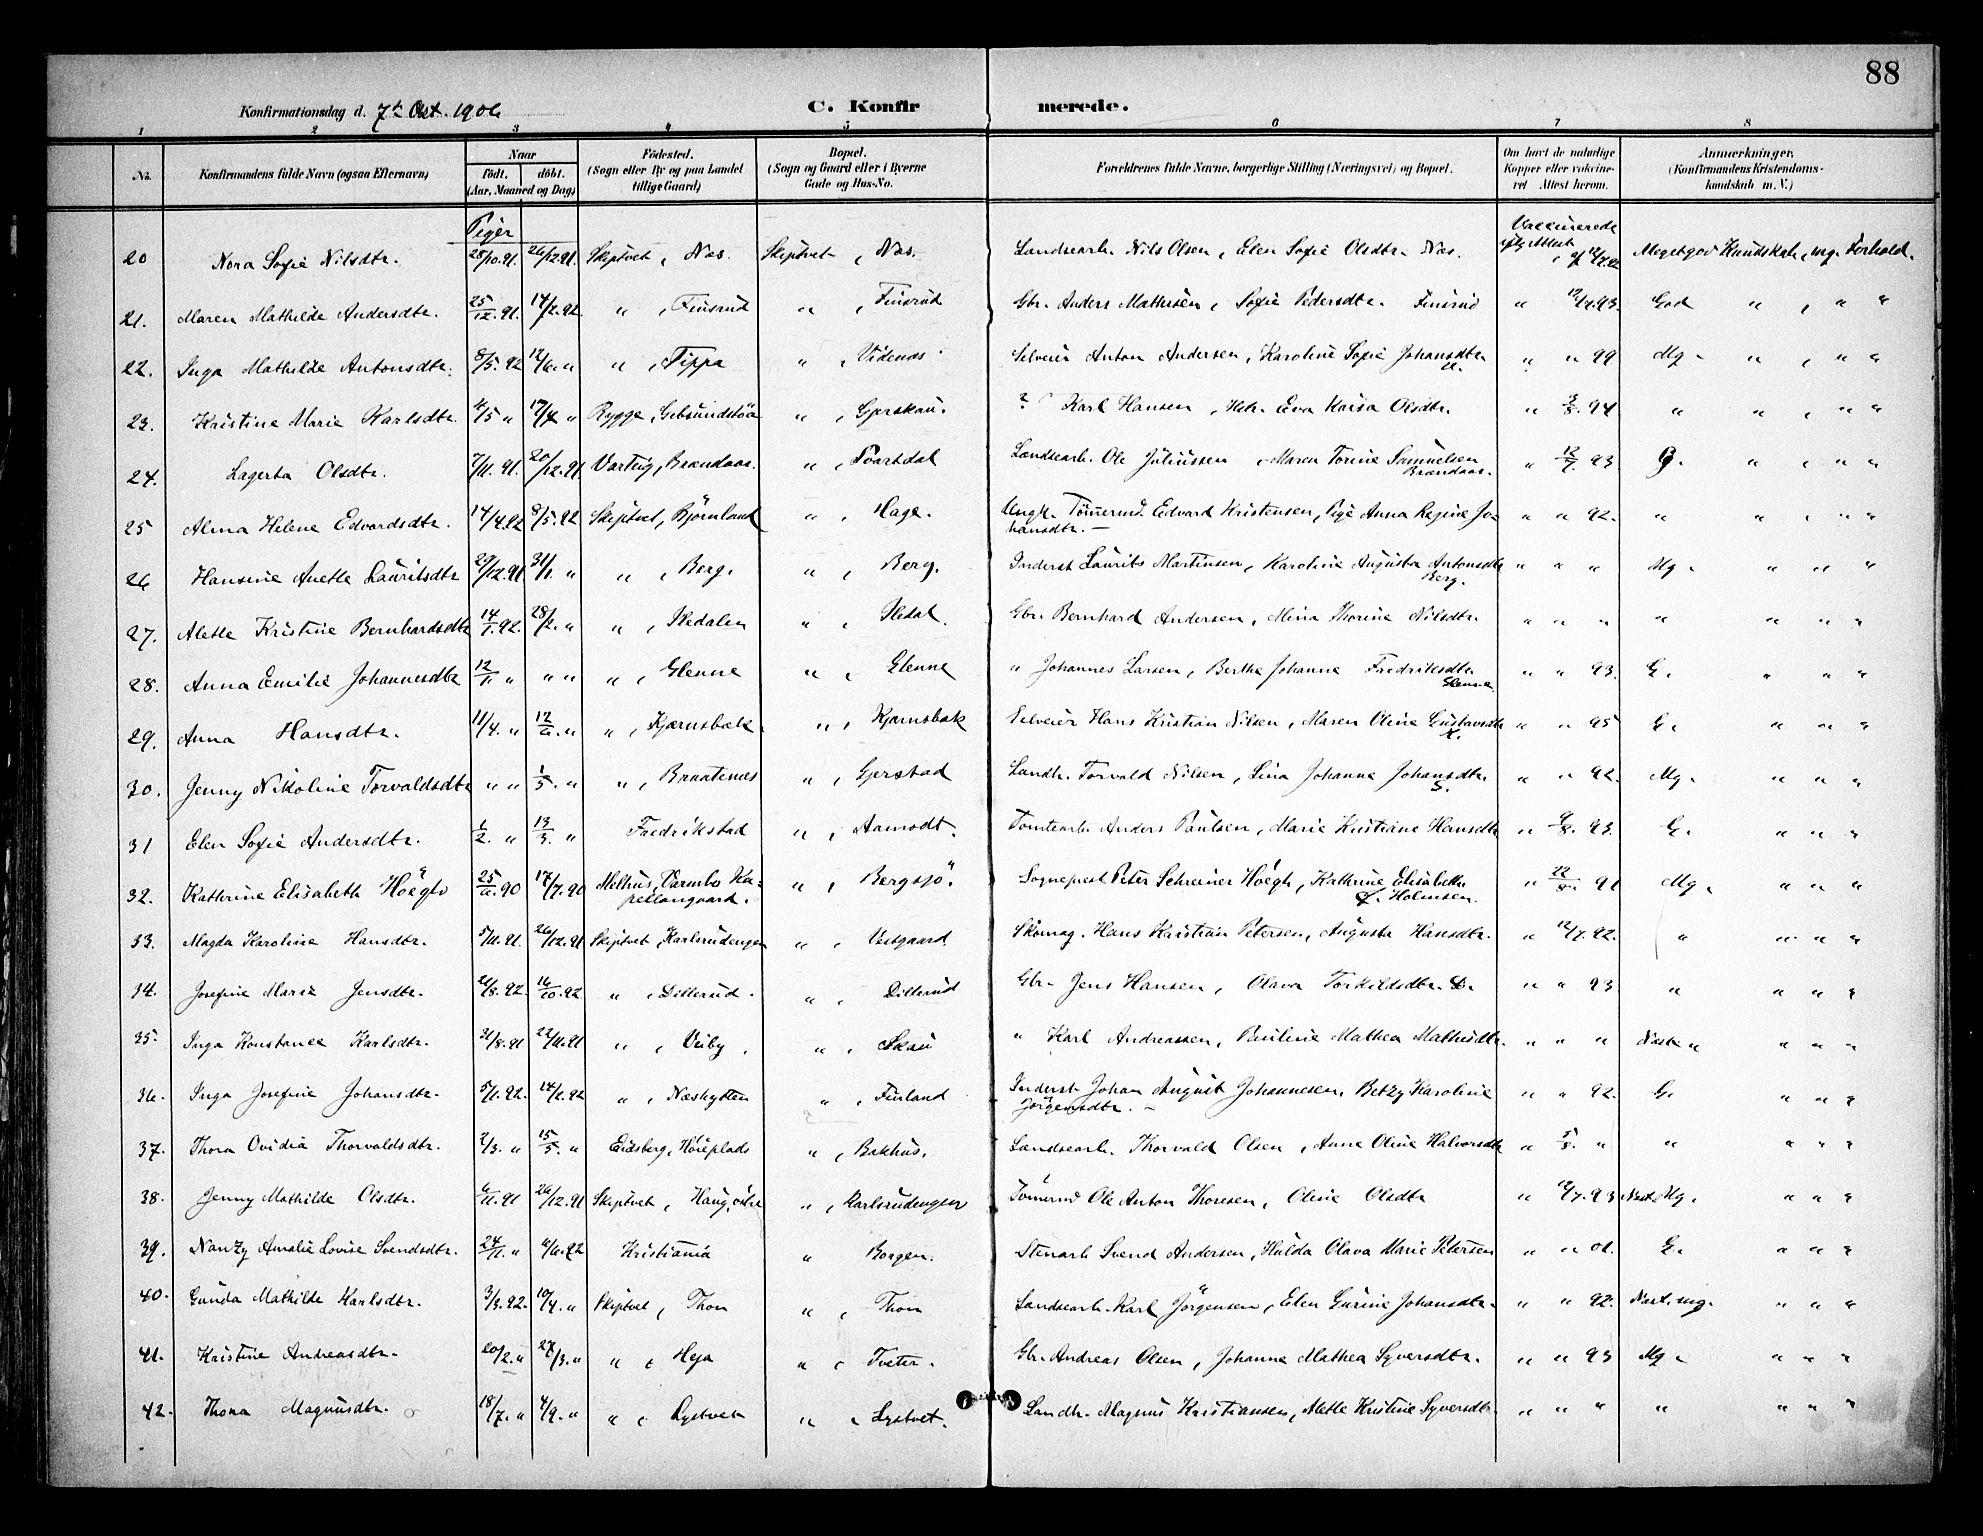 88
Konfirmationsdag d. 7de Okt. 1906
C. Konfirmerede.
1 2 3 4 5 6 7 8
No. Konfirmandens fulde Navn (ogsaa Efternavn) Naar Födt. döbt. (Aar, Maaned og Dag) Födested. (Sogn eller By og paa Landet tillige Gaard) Bopæl. (Sogn og Gaard eller i Byerne Gade og Hus-No. Forældrenes fulde Navne, borgerlige Stilling (Næringsvei) og Bopæl. Om havt de naturlige Kopper eller vakcineret Attest herom. Anmærkninger. (Konfirmandens Kristendomskundskab m. V.)
Piger Vaccinerede
20 Nora Sofie Nilsdtr. 28/10.91. 26/12.91. Skiptvet, Næs. Skiptvet, Næs. Landsearb. Nils Olsen, Elen Sofie Olsdtr. Næs. Meget god Kundskab, mg. Forhold.
21. Maren Mathilde Andersdtr. 25/12.91. 14/2.92 " , Finsrud " , Finsrud Gbr. Anders Mathisen, Sofie Pedersdtr. Finsrud " 12/7.93. God " , " "
22. Inga Mathilde Antonsdtr. 8/5.92 12/6. " " , Tippa " , Videnas Selveier Anton Andersen, Karoline Sofie Johansdtr. " " 99 Mg. " , " "
23. Kristine Marie Karlsdtr. 17/4 " Rygge, " , Gjerskau. ? Karl Hansen, Eva Kaisa Olsdtr. " 94 " " , " "
24. Lagerta Olsdtr. 7/11.91. 20/12.91 Varteig, Brændaas. " , Svartdal Landsearb. Ole Juliussen, Maren Torine Samuelsen Brændaas. " 12/7 93 G. " , " "
25 Alma Helene Edvardsdtr. 14/4.92 8/5.92 Skiptvet, Björnland " , Hage. Ungk. Tömermd. Edvard Kristensen, Pige Anna Regine Johansdtr. — " " 92. " " , " "
26 Hansine Anette Lauritsdtr 29/12.91 31/1. " " , Berg. " , Berg. Inderst Laurits Martinsen, Karoline Augusta Antonsdtr Berg. " " " Mg. " " "
27. Alette Kristine Bernhardsdtr 14/1.92. 28/2. " " , Iledalen " , Iledal. Gbr. Bernhard Andersen, Mina Thorine Nilsdtr. " " " " " " "
28. Anna Emilie Johannesdtr 12/1 " " " " , Glenne " , Glenne " Johannes Larsen, Berthe Johanne Fredriksdtr. Glenne. " " 93. G. " " "
29. Anna Hansdtr. 11/4. " 12/6. " " , Kjærnsbæk. " , Kjærnsbæk Selveier Hans Kristian Nilsen, Maren Oline Gustavsdtr K. " " 95 G. " " "
30. Jenny Nikoline Torvaldsdtr " " 1/5. " " , Braatenæs " , Gjerstad Landh. Torvald Nilsen, Lina Johanne Johansdtr. " " 92. Mg. " " "
31 Elen Sofie Andersdtr. 1/2. " 13/3. " Fredrikstad " , Aamodt. Tomtearb. Anders Paulsen, Marie Kristiane Hansdtr " 9/8. 93. G. " " "
32. Kathrine Elisabeth Höegh 25/6.90 17/7.90 Melhus, Varmbo Kapellangaard. " , Bergsjö. Sogneprest Peter Schreiner Höegh, Kathrine Elisabeth f. Holmsen. " 22/8. 91 Mg. " " "
33. Magda Karoline Hansdtr. 5/11.91. 26/12.91 Skiptvet, Karlsrudengen " , Vestgaard. Skomag. Hans Kristian Petersen, Augusta Hansdtr. " 12/7.92. " " " "
34. Josefine Marie Jensdtr. 16/10.92 " , Dillerud. " , Dillerud Gbr. Jens Hansen, Olava Torkildsdtr. D. " " 93 " " " "
35. Inga Konstance Karlsdtr. 31/8.91 22/11.91 " , Viiby. " , Skau " Karl Andreassen, Pauline Mathea Mathisdtr. " " " Næst. " " " "
36. Inga Josefine Johansdtr. 5/1.92. 14/2.92 " , Næshytten " , Finland Inderst Johan August Johannesen, Betzy Karoline Jörgensdtr. — " " 92. G. " " "
37. Thora Ovidia Thorvaldsdtr. 2/3. " 15/5. " Eidsberg, Höieplads " , Bakhus. Landsearb. Thorvald Olsen, Anne Oline Halvorsdtr " 5/8. " " " " "
38. Jenny Mathilde Olsdtr. 6/11.91 26/12.91 Skiptvet, Haug, östre " , Karlsrudengen Tömermd Ole Anton Thoresen, Oline Olsdtr " 12/7.93 Næst. Mg. " " "
39. Nanzy Amalie Lovise Svendsdtr. 24/11. " 6/6.92 Kristiania " Borgen. Stenarb. Svend Andersen, Hulda Olava Marie Petersen " " 01. G. " " "
40. Gunda Mathilde Karlsdtr. 3/3.92. 10/4. " Skiptvet, Thon " , Thon Landsearb. Karl Jörgensen, Elen Gurine Johansdtr. " " 92. Næst. mg. " " "
41. Kristine Andreasdtr. 20/2. " 27/3. " " , Heja " , Tveter. Gbr. Andreas Olsen, Johanne Mathea Syversdtr. " " 93 Mg. " " "
42. Thora Magnusdtr. 18/7. " 4/9. " " , Lystvet " , Lystvet. Landh. Magnus Kristiansen, Mette Kristine Syversdtr. " " " " " " "